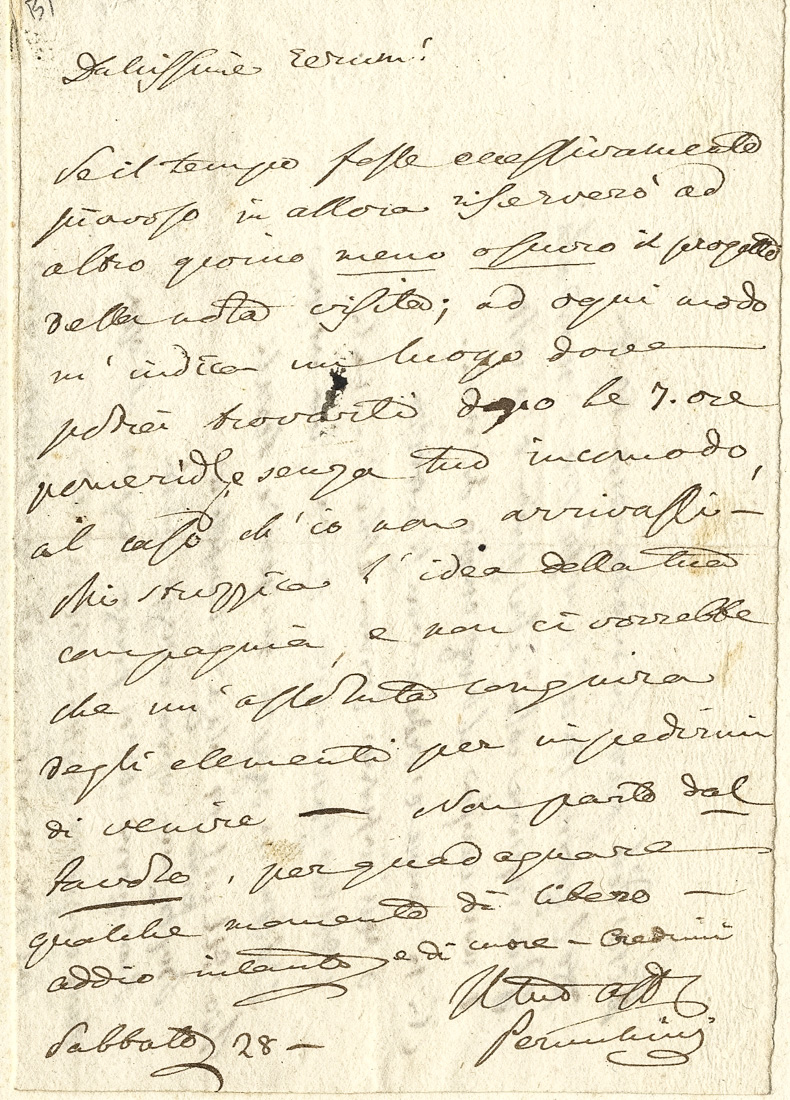 Se il tempo fosse eccessivamente
piovoso in allora riserverò ad
altro giorno meno oscuro il progetto
della nota visita; ad ogni modo
m'indica un luogo dove
potrei trovarti dopo le 7. ore
pomerid.e senza tuo incomodo,
al caso ch'io non arrivassi –
Mi stuzzica l'idea della tua
compagnia, e non ci vorrebbe
che un'assoluta congiura
degli elementi per impedirmi
di venire — Non parto dal
tavolo, per guadagnare
qualche momento di libero –
addio intanto e di cuore – Credimi
Il tuo aff.
Peruchini
Sabbato 28 –